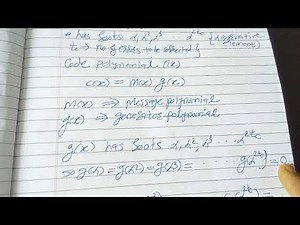 • has roots α, α², α³ α^2tc {α → primitive element}
tc ⇒ no. of errors to be corrected.}
Code Polynomial (x)
c(x) = m(x) g(x)
m(x) ⇒ Message polynomial
g(x) ⇒ generator polynomial
g(x) has roots α, α², α³ ... α^2tc
⇒ g(α) = g(α²) = g(α³) = g(α^2tc) = 0